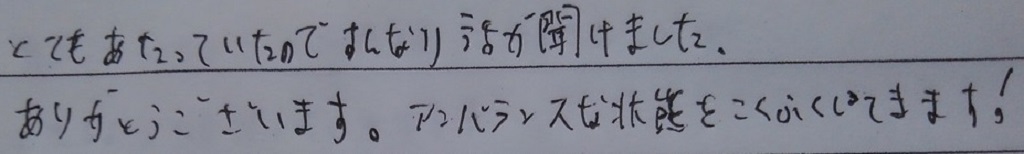 とてもあたっていたのですんなり話が聞けました。
ありがとうございます。アンバランスな状態をこくふくしてきます!